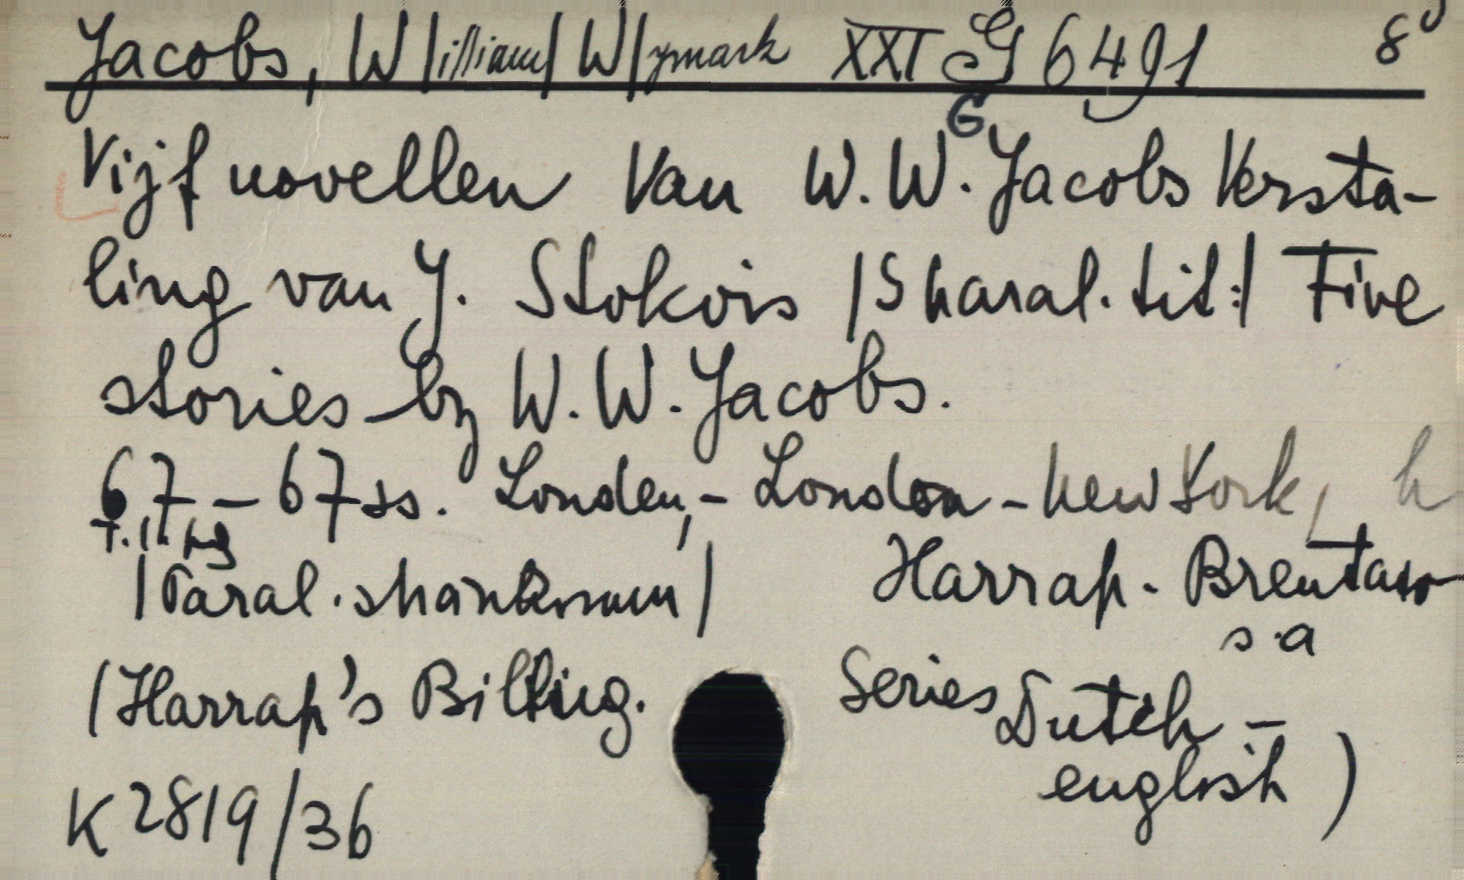 Jacobs, W/illiam/ W/ymark XXI G 6491 8°
G
Vijf novellen van W. W. Jacobs Versta-
ling van J. Stokvis /Sharal. tit:/ Five
stories by W. W. Jacobs.
67 - 67 ss. Londen, - London - New York,
/Paral. / Harrap - Brentano
s.a
(Harrap's Billing. Series Dutch -
english)
K 2819/36